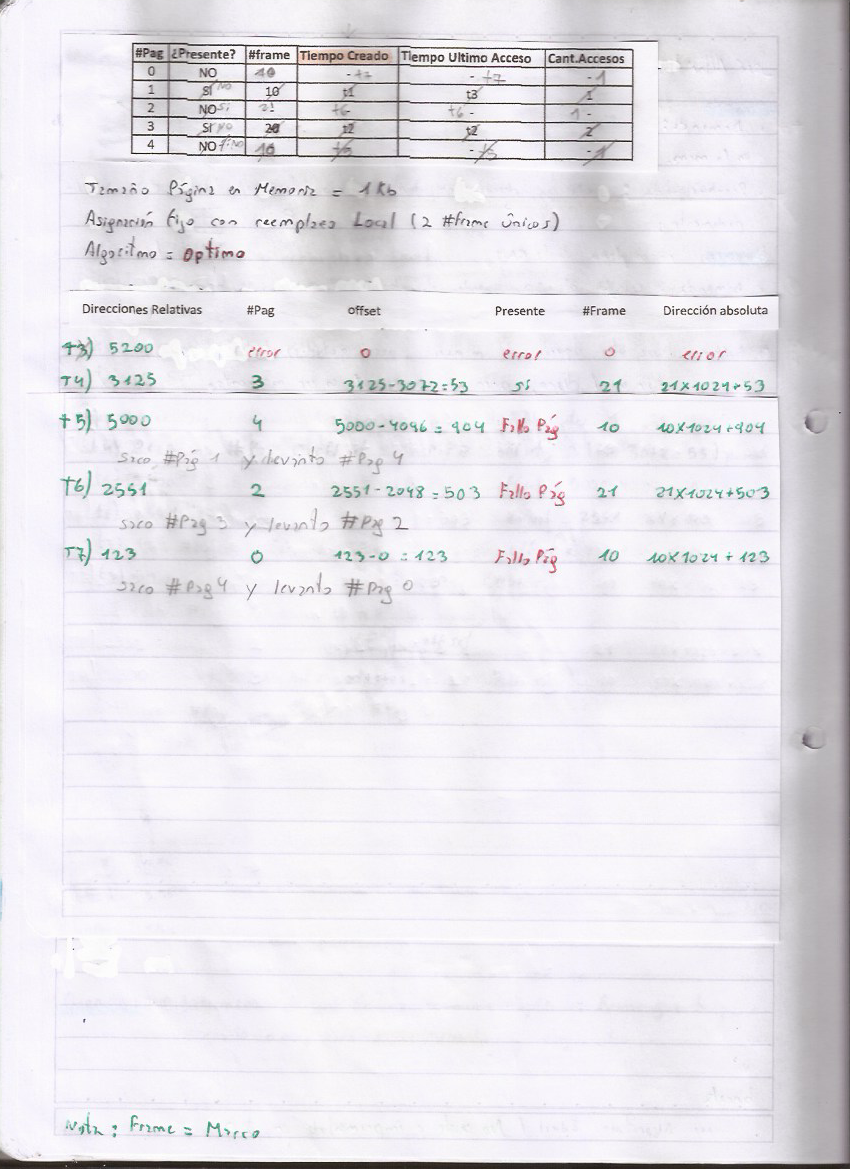 #Pag ¿Presente? #frame Tiempo Creado Tiempo Ultimo Acceso Cant.Accesos
0 NO 10 - t7 - t7 - 1
1 SI NO 10 t1 t3 1
2 NO SI 21 t6 - t6 - 1 -
3 SI NO 20 t2 t2 2
4 NO 10 t5 - t5 - 1
Tamaño Página en Memoria = 1 Kb
Asignación fijo con reemplazo Local (2 #frame únicos)
Algoritmo = Optimo
Direcciones Relativas #Pag offset Presente #Frame Dirección absoluta
T3) 5200 error 0 error 0 error
T4) 3125 3 3125-3072=53 si 21 21x1024+53
t5) 5000 4 5000-4096=904 Fallo Pág 10 10x1024+904
saco #Pág 1 y levanto #Pag 4
T6) 2551 2 2551-2048=503 Fallo Pág 21 21x1024+503
saco #Pag 3 y levanto #Pag 2
T7) 123 0 123-0=123 Fallo Pág 10 10x1024+123
saco #Pag 4 y levanto #Pag 0
Nota: Frame = Marco